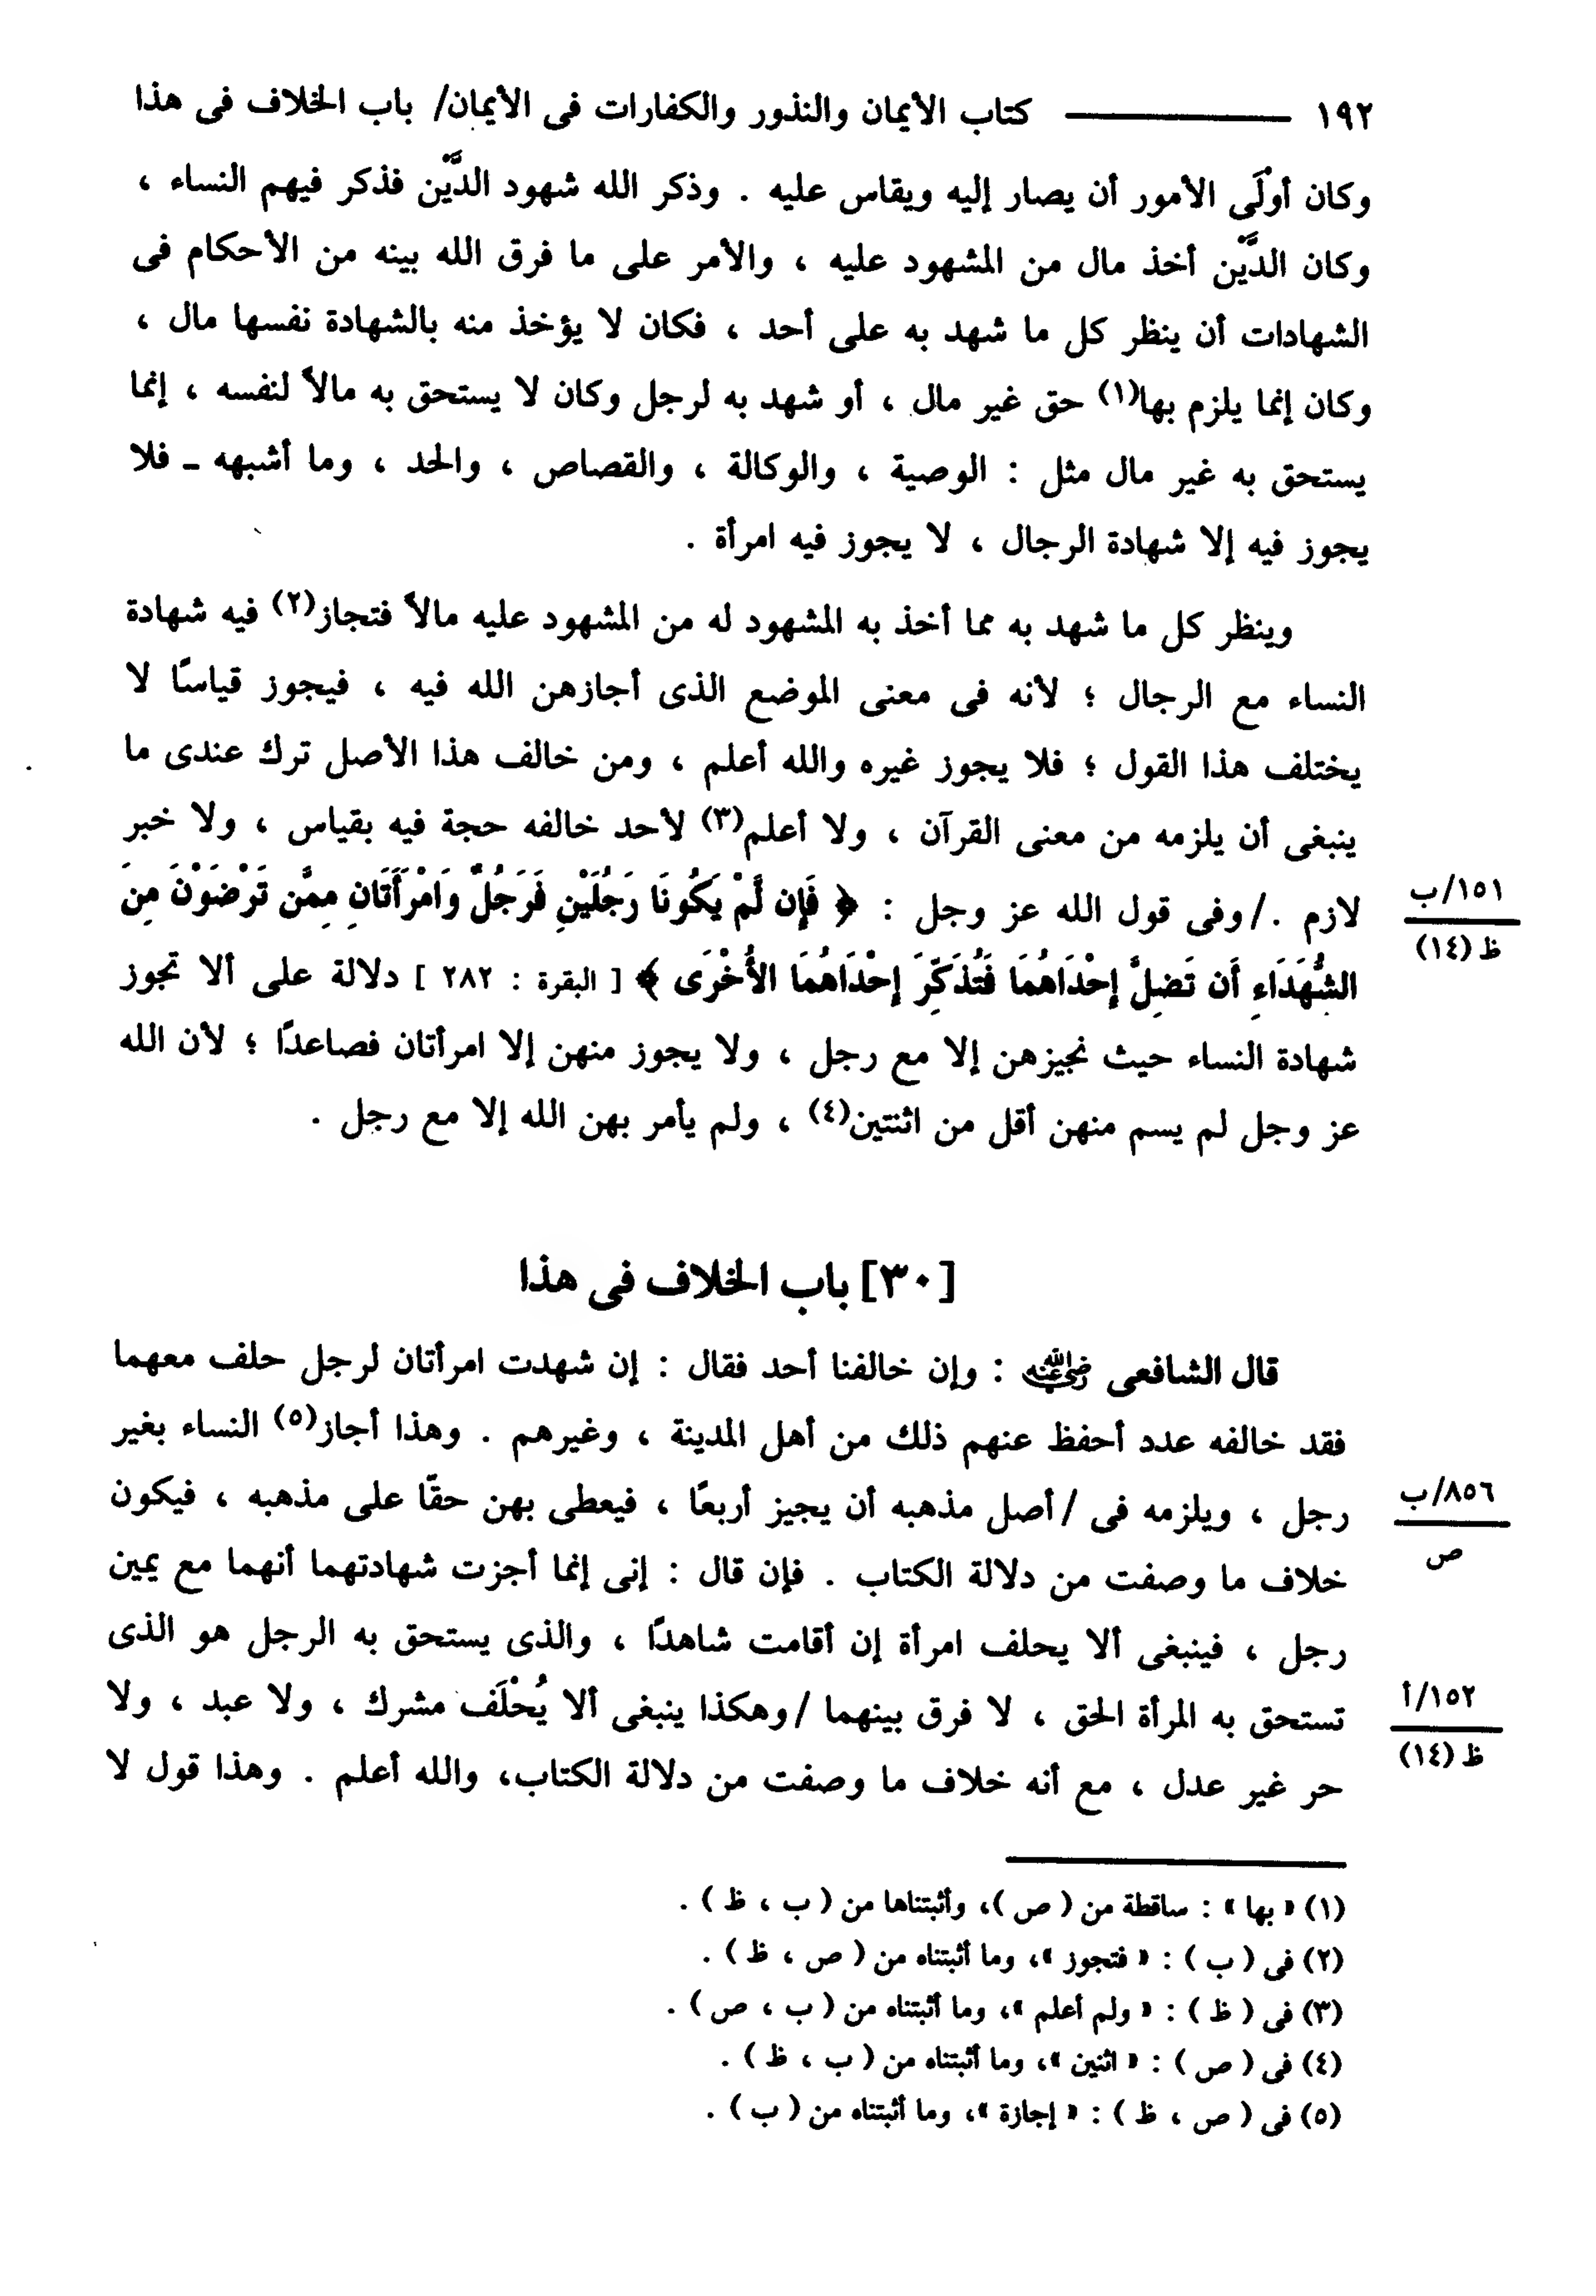 ١٩٢ ـــــــــ كتاب الأيمان والنذور والكفارات فى الأيمان/ باب الخلاف فى هذا
وكان أولَى الأمور أن يصار إليه ويقاس عليه . وذكر الله شهود الدَّيْن فذكر فيهم النساء ،
وكان الدَّيْن أخذ مال من المشهود عليه ، والأمر على ما فرق الله بينه من الأحكام فى
الشهادات أن ينظر كل ما شهد به على أحد ، فكان لا يؤخذ منه بالشهادة نفسها مال ،
وكان إنما يلزم بها(١) حق غير مال ، أو شهد به لرجل وكان لا يستحق به مالاً لنفسه ، إنما
يستحق به غير مال مثل : الوصية ، والوكالة ، والقصاص ، والحد ، وما أشبهه ـ فلا
يجوز فيه إلا شهادة الرجال ، لا يجوز فيه امرأة .
وينظر كل ما شهد به مما أخذ به المشهود له من المشهود عليه مالاً فتجاز(٢) فيه شهادة
النساء مع الرجال ؛ لأنه فى معنى الموضع الذى أجازهن الله فيه ، فيجوز قياسًا لا
يختلف هذا القول ؛ فلا يجوز غيره والله أعلم ، ومن خالف هذا الأصل ترك عندى ما
ينبغى أن يلزمه من معنى القرآن ، ولا أعلم(٣) لأحد خالفه حجة فيه بقياس ، ولا خبر
لازم . /وفى قول الله عز وجل : ﴿ فَإِن لَّمْ يَكُونَا رَجُلَيْنِ فَرَجُلٌ وَامْرَأَتَانِ مِمَّن تَرْضَوْنَ مِنَ
١٥١/ب
ظ (١٤)
الشُّهَدَاءِ أَن تَضِلَّ إِحْدَاهُمَا فَتُذَكِّرَ إِحْدَاهُمَا الأُخْرَى ﴾ [ البقرة : ٢٨٢ ] دلالة على ألا تجوز
شهادة النساء حيث نجيزهن إلا مع رجل ، ولا يجوز منهن إلا امرأتان فصاعدًا ؛ لأن الله
عز وجل لم يسم منهن أقل من اثنتين(٤) ، ولم يأمر بهن الله إلا مع رجل .
[٣٠] باب الخلاف فى هذا
قال الشافعى رضي الله عنه : وإن خالفنا أحد فقال : إن شهدت امرأتان لرجل حلف معهما
فقد خالفه عدد أحفظ عنهم ذلك من أهل المدينة ، وغيرهم . وهذا أجاز(٥) النساء بغير
رجل ، ويلزمه فى /أصل مذهبه أن يجيز أربعًا ، فيعطى بهن حقّا على مذهبه ، فيكون
٨٥٦/ب
ص
خلاف ما وصفت من دلالة الكتاب . فإن قال : إنى إنما أجزت شهادتهما أنهما مع يمين
رجل ، فينبغى ألا يحلف امرأة إن أقامت شاهدًا ، والذى يستحق به الرجل هو الذى
تستحق به المرأة الحق ، لا فرق بينهما /وهكذا ينبغى ألا يُحْلَف مشرك ، ولا عبد ، ولا
١٥٢/أ
ظ (١٤)
حر غير عدل ، مع أنه خلاف ما وصفت من دلالة الكتاب، والله أعلم . وهذا قول لا
(١) « بها » : ساقطة من ( ص )، وأثبتناها من ( ب ، ظ ) .
(٢) فى ( ب ) : « فتجوز »، وما أثبتناه من ( ص ، ظ ) .
(٣) فى ( ظ ) : « ولم أعلم »، وما أثبتناه من ( ب ، ص ) .
(٤) فى ( ص ) : « اثنين »، وما أثبتناه من ( ب ، ظ ) .
(٥) فى ( ص ، ظ ) : « إجازة »، وما أثبتناه من ( ب ) .